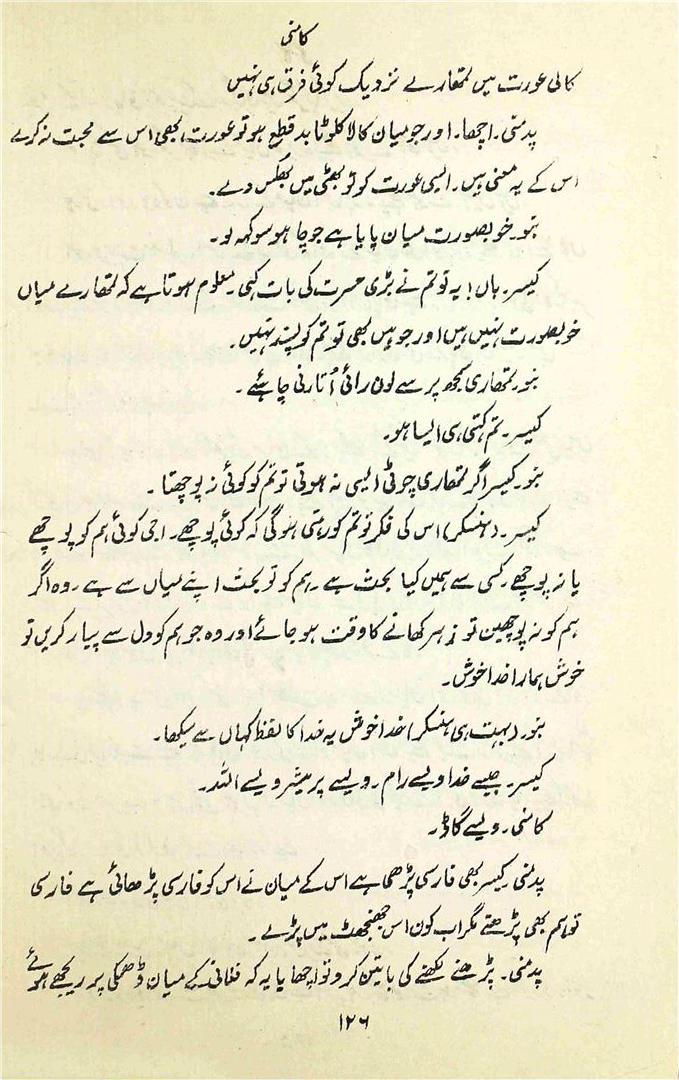 کامنی
کالی عورت میں تمھارے نزدیک کوئی فرق ہی نہیں
پدمنی۔ اچھا۔ اور جو میان کالا کلوٹا بد قطع ہو تو عورت بھی اس سے محبت نہ کرے
اس کے یہ معنی ہیں۔ ایسی عورت کو تو بھٹی میں بھکس دے۔
بنو۔ خوبصورت میان پایا ہے جو چاہو سو کہہ لو۔
کیسر۔ ہاں! یہ تو تم نے بڑی حسرت کی بات کہی۔ معلوم ہوتا ہے کہ تمھارے میاں
خوبصورت نہیں ہیں اور جو ہیں بھی تو تم کو پسند نہیں۔
بنو۔ تمھاری مجھ پر سے لون رائی اُتارنی چاہئے۔
کیسر۔ تم کتی ہی ایسا ہو۔
بنو۔ کیسر اگر تمھاری چوٹی ایسی نہ ہوتی تو تم کو کوئی نہ پوچھتا۔
کیسر۔ (ہنسکر) اس کی فکر تو تم کو رہتی ہوگی کہ کوئی پوچھے۔ اجی کوئی ہم کو پوچھے
یا نہ پوچھے۔ کسی سے ہمیں کیا بحث ہے۔ ہم کو تو بحث اپنے میاں سے ہے۔ وہ اگر
ہم کو نہ پوچھین تو زہر کھانے کا وقت ہو جائے اور وہ جو ہم کو دل سے پیار کریں تو
خوش ہمارا خدا خوش۔
بنو۔ (بہت ہی ہنسکر) خدا خوش یہ خدا کا لفظ کہاں سے سیکھا۔
کیسر۔ جیسے خدا ویسے رام۔ ویسے پرمیشر ویسے اللہ۔
کامنی۔ ویسے گاڈ۔
پدمنی۔ کیسر بھی فارسی پڑھی ہے اس کے میان نے اس کو فارسی پڑھائی ہے فارسی
تو ہم بھی پڑھتے مگر اب کون اس جھنجھٹ میں پڑے۔
پدمنی۔ پڑھنے لکھنے کی باتین کرو تو اچھا یا یہ کہ فلانی کے میان ڈھمکی پر ریجھے ہوئے
۱۲۶